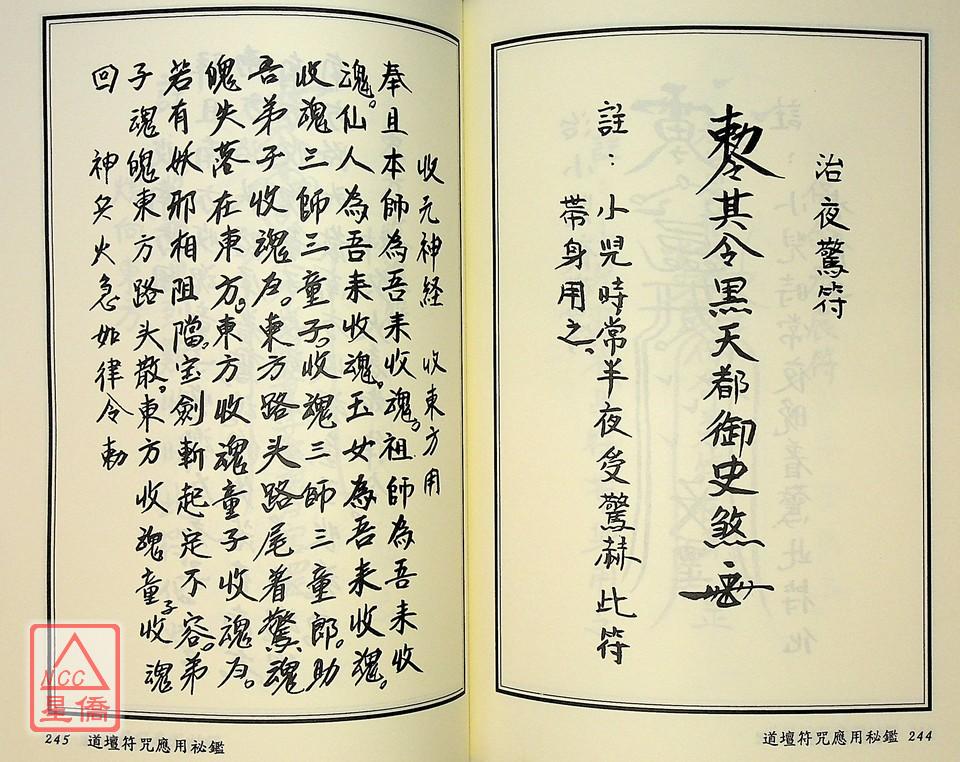 治夜驚符
勅令其令黑天都御史煞
註：小児時常半夜受驚赫此符
帶身用之、
道壇符咒應用秘鑑 244
收元神経 收東方用
奉且本師為吾来收魂。祖師為吾来收
魂。仙人為吾来收魂。玉女為吾来收魂。
收魂三師三童子。收魂三師三童郎。助
吾弟子收魂应。東方路头路尾着驚魂
魄失落在東方。東方收魂童子收魂应。
若有妖邪相阻擋。宝劍斬起定不容。弟
子魂魄東方路头散。東方收魂童子收魂
回 神兵火急如律令勅
245 道壇符咒應用祕鑑
MCC
星僑